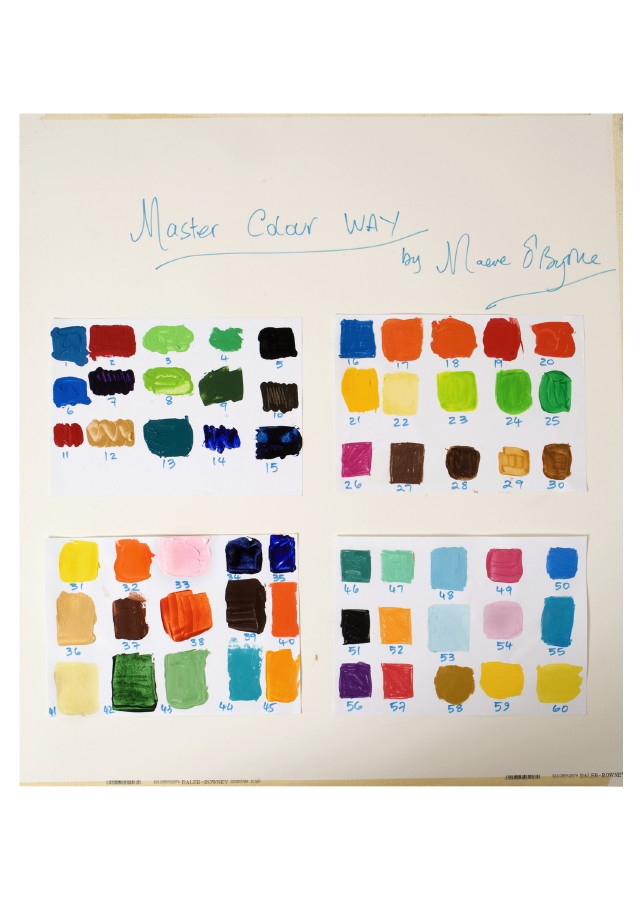 Master Colour WAY
by Maeve O'Byrne
1 2 3 4 5
6 7 8 9 10
11 12 13 14 15
16 17 18 19 20
21 22 23 24 25
26 27 28 29 30
31 32 33 34 35
36 37 38 39 40
41 42 43 44 45
46 47 48 49 50
51 52 53 54 55
56 57 58 59 60
DALER-ROWNEY
DALER-ROWNEY